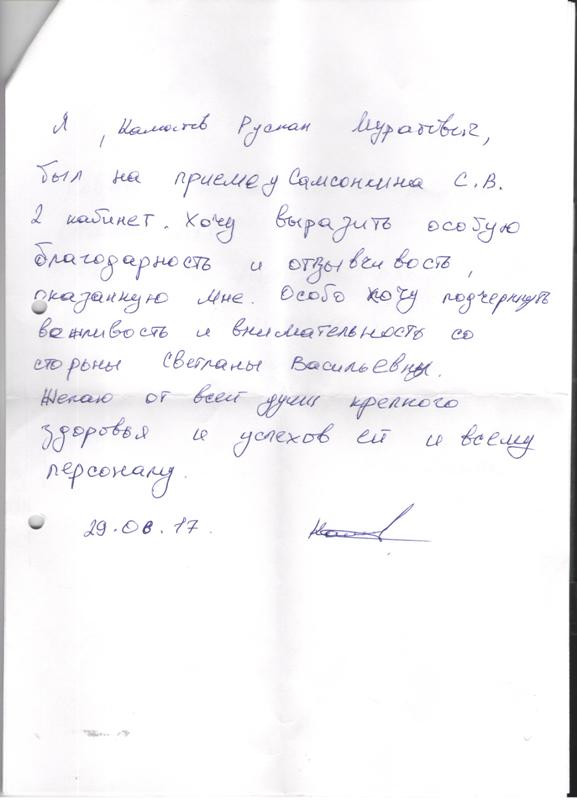 Я, Руслан Муратович,
был на приеме у Самсонкина С.В.
2 кабинет. Хочу выразить особую
благодарность и отзывчивость,
оказанную мне. Особо хочу подчеркнуть
вежливость и внимательность со
стороны Светланы Васильевны.
Желаю от всей души крепкого
здоровья и успехов ей и всему
персоналу.
29.08.17.